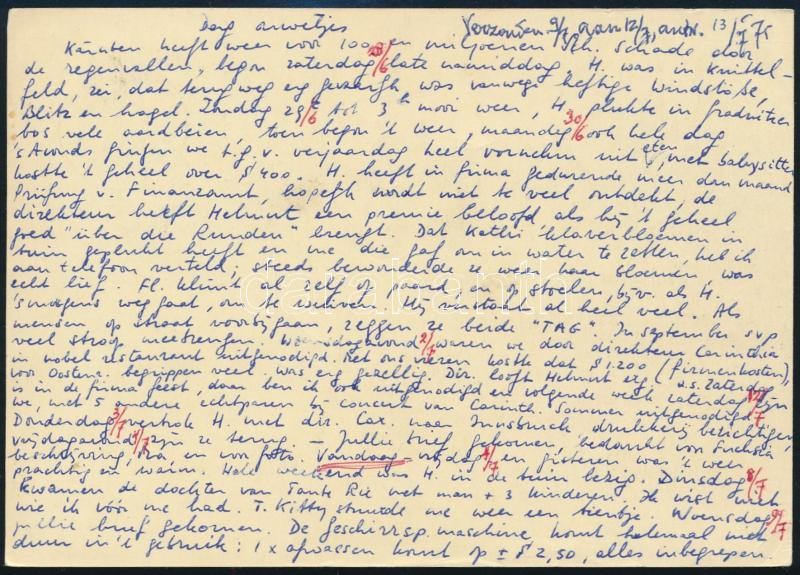 Dag anwetjes Verzonden 9/7, aan 12/7, antw. 13/7 75
Kärnten heeft weer voor 100den miljoenen Sch. Schade door
de regenvallen, begon zaterdag 28/6 late namiddag H. was in Knittel-
feld, zei, dat terugweg erg gevaarlijk was vanwege heftige Windstöße,
Blitz en hagel. Zondag 29/6 tot 3h mooi weer, H. plukte in Gradnitzer
bos vele aardbeien, toen begon 't weer, maandag 30/6 ook hele dag
's Avonds gingen we t.g.v. verjaardag heel vornehm uit eten, met babysitter
kostte 't geheel over S 400. H. heeft in firma gedurende meer dan maand
Prüfung v. Finanzamt, hopelijk wordt niet te veel ontdekt, de
direkteur heeft Helmut een premie beloofd als hij 't geheel
goed "über die Runden" brengt. Dat Kathi klaverbloemen in
tuin geplukt heeft en me die gaf om in water te zetten, heb ik
aan telefoon verteld; steeds bewonderde ze weer haar bloemen was
echt lief. Fl. klimt al zelf op paard, en op stoelen, bijv. als H.
's morgens weggaat, om te wuiven. Hij verstaat al heel veel. Als
mensen op straat voorbijgaan, zeggen ze beide "TAG". In september svp
veel stroop meebrengen. Woensdagavond 2/7 waren we door direkteur Carinthia
in nobel restaurant uitgenodigd. Met ons vieren kostte dat S 1.200 (firmenkosten),
voor Oostenr. begrippen veel, was erg gezellig. Dir. looft Helmut erg. a.s. Zaterdag
is in de firma feest, daar ben ik ook uitgenodigd en volgende week zaterdag 12/7 zijn
we, met 5 andere echtparen bij concert van Carinth. Sommer uitgenodigd.
Donderdag 3/7 vertrok H. met dir. Car. naar Innsbruck drukkerij bezichtigen,
vrijdagavond 4/7 zijn ze terug — Jullie brief gekomen, bedankt voor Fuchsia
beschrijving, ra en voor foto. Vandaag vrijdag 4/7 en gisteren was 't weer
prachtig en warm. Hele weekend was H. in de tuin bezig. Dinsdag 8/7
kwamen de dochter van Tante Rie met man + 3 kinderen. Ik wist niet
wie ik vóór me had. T. Kitty stuurde me weer een tientje. Woensdag 9/7
jullie brief gekomen. De Geschirrsp. maschine komt helemaal niet
duur in 't gebruik: 1 x afwassen komt op ± S 2,50, alles inbegrepen.
darabanth